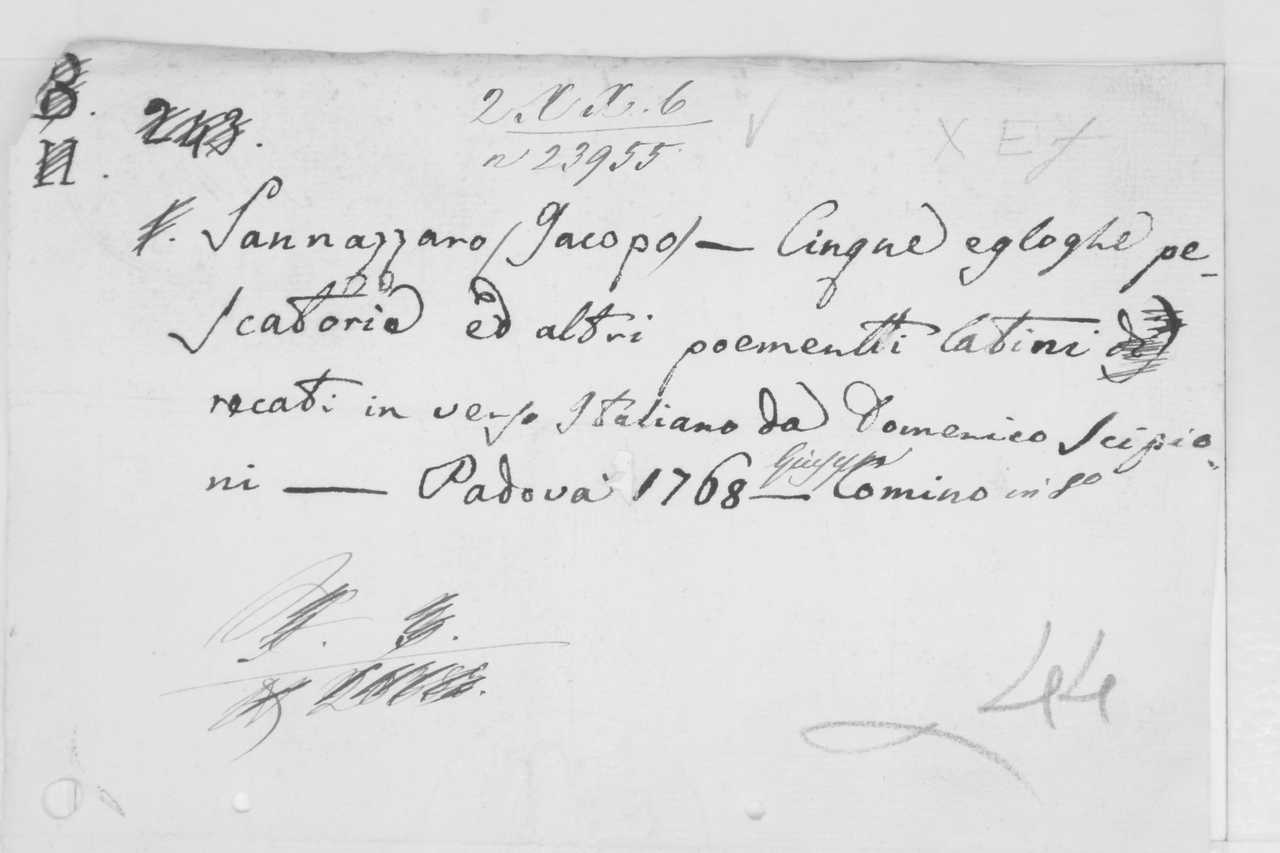 2 X X. 6
n 23955
X E f
Sannazzaro (Jacopo) — Cinque egloghe pe-
scatorie ed altri poementti latini
recati in verso Italiano da Domenico Scipio-
ni — Padova 1768 — Giuseppe Comino in 8o
44